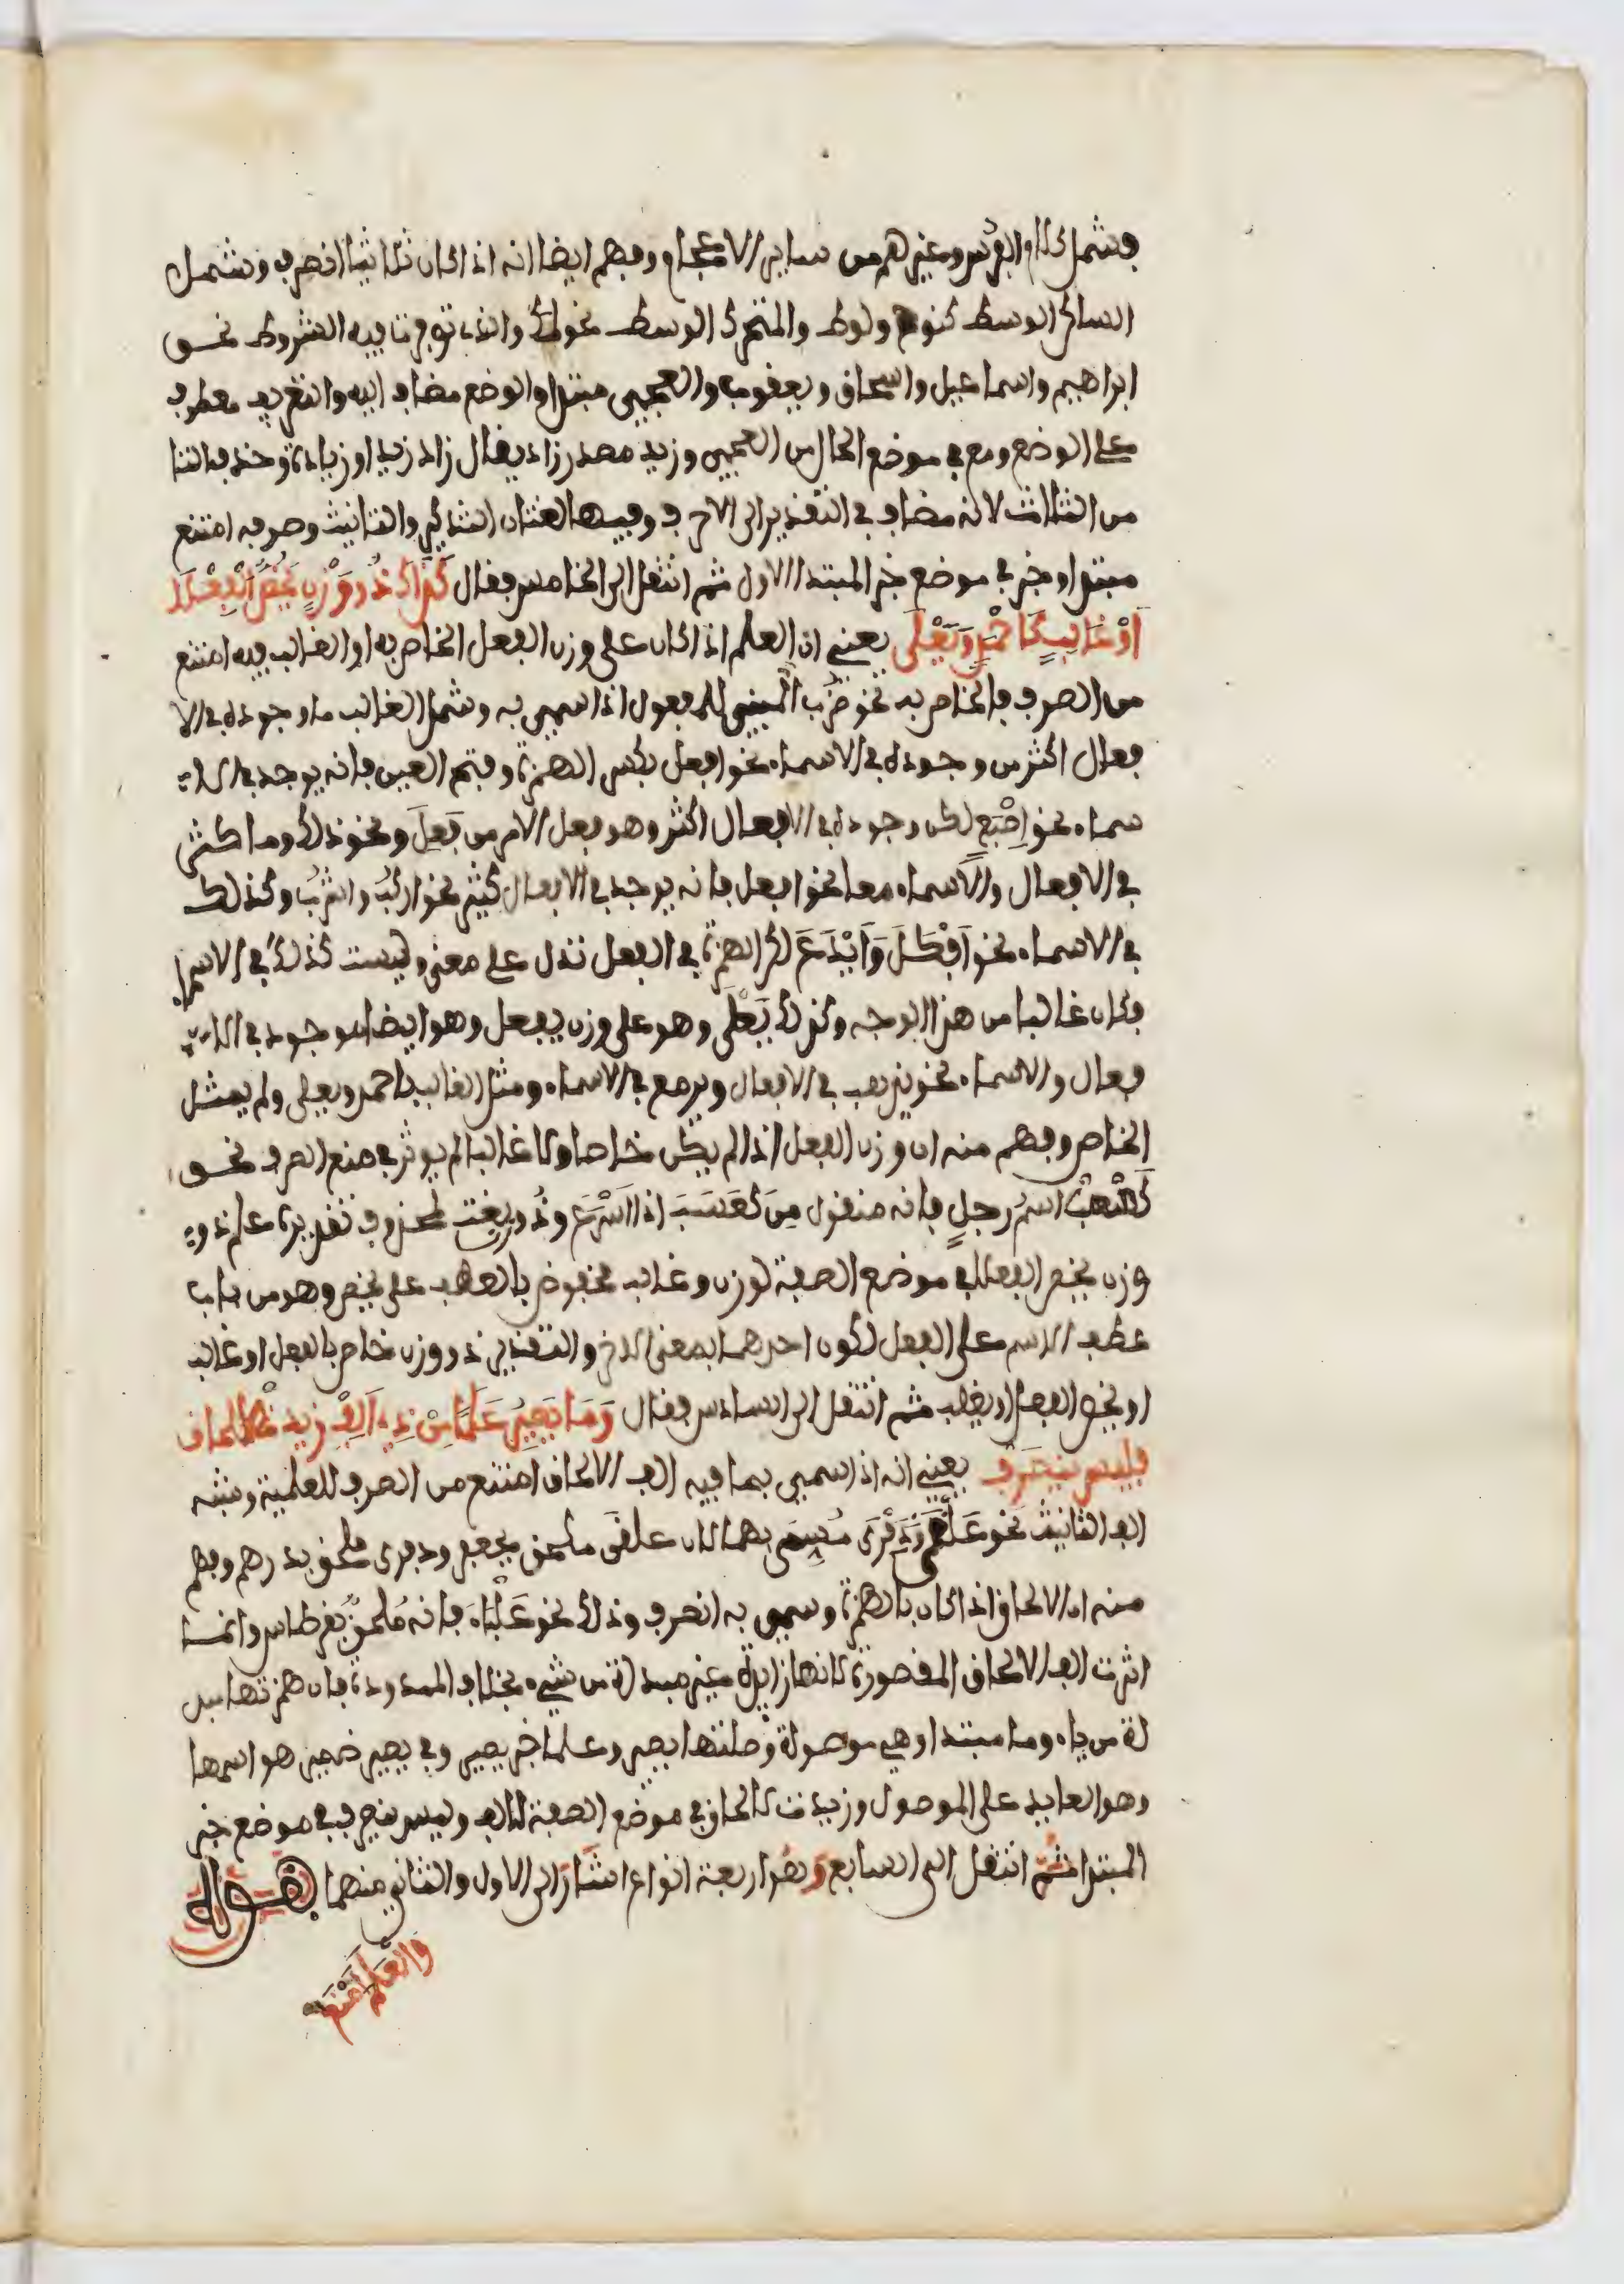 فشمل كلام الفرس وغيرهم من ساير الاعجام وفهم ايضا انه اذا كان ثلاثيا انصرف وشمل
الساكن الوسط كنوح ولوط والمتحرك الوسط نحو لمك والذي توفرت فيه الشروط نحو
ابراهيم واسماعيل واسحاق ويعقوب والعجمي مبتدا والوضع مضاف اليه والتعريف معطوف
على الوضع ومع في موضع الحال من العجمي وزيد مصدر زاد يقال زاد زيدا وزيادة وحذف التا
من الثلاث لانه مضاف في التقدير الى الاحرف وفيها لغتان التذكير والتانيث وصرفه امتنع
مبتدا وخبر في موضع خبر المبتدا الاول ثم انتقل الى الخامس فقال كَذَاكَ ذُو وَزْنٍ يَخُصُّ الْفِعْلَا
اَوْ غَالِبٍ كَاَحْمَدٍ وَيَعْلَى يعني ان العلم اذا كان على وزن الفعل الخاص به او الغالب فيه امتنع
من الصرف فالخاص به نحو ضُرِب المبني للمفعول اذا سمي به وشمل الغالب ما وجوده في الا
فعال اكثر من وجوده في الاسماء نحو افعل بكسر الهمزة وفتح العين فانه يوجد في الا
سماء نحو اِصْبَع لكن وجوده في الافعال اكثر وهو فعل الامر من فَعِلَ ونحو ذلك وما كثر
في الافعال والاسماء معا نحو افعل فانه يوجد في الافعال كثير نحو اركبُ واشربُ وكذلك
في الاسماء نحو اَفْكَلَ وَاَيْدَعَ لكن الهمزة في الفعل تدل على معنى وليست كذلك في الاسماء
فكان غالبا من هذا الوجه وكذلك يَعْلَى وهو على وزن يفعل وهو ايضا موجود في الا
فعال والاسماء نحو يذهب في الافعال ويرمع في الاسماء ومثل الغالب باحمد ويعلى ولم يمثل
الخاص وفهم منه ان وزن الفعل اذا لم يكن خاصا ولا غالبا لم يوثر في منع الصرف نحو
كَعْسَبَ اسمُ رجلٍ فانه منقول مِنَ كَعْسَبَ اذا اَسْرَعَ وذُو نعت لمحذوف تقديره علم ذو
وزن يخص الفعل في موضع الصفة لوزن وغالب مخفوض بالعطف على يخص وهو من باب
عطف الاسم على الفعل لكون احدهما بمعنى الاخر والتقدير ذو وزن خاص بالفعل او غالب
او يخص الفعل او يغلب ثم انتقل الى السادس فقال وَمَا يَصِيرُ عَلَمًا مِنْ ذِي اَلِفْ زِيدَتْ لِالحاق
فليس ينصرف يعني انه اذا سمي بما فيه الف الالحاق امتنع من الصرف للعلمية وشبه
الف التانيث نحو عَلْقَى وَذِفْرَى مُسمى بهما لان علقى ملحق بجعفر وذفرى ملحق بدرهم وفهم
منه ان الالحاق اذا كان بالهمزة وسمي به انصرف وذلك نحو عَلْبَاء فانه مُلحقٌ بقرطاس وانما
اثرت الف الالحاق المقصورة لانها زايدة غير مبدلة من شيء بخلاف الممدودة فان همزتها مبد
لة من ياء وما مبتدا وهي موصولة وصلتها يصير وعلما خبر يصير وفي يصير ضمير هو اسمها
وهو العايد على الموصول وزيدت لالحاق في موضع الصفة لالف وليس ينصرف في موضع خبر
المبتدا ثم انتقل الى السابع وهو اربعة انواع اشار الى الاول والثاني منهما بقوله
والعلم امنع